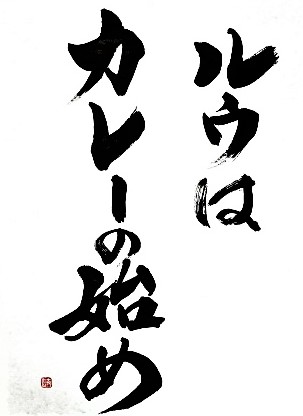 ルウは
カレーの始め